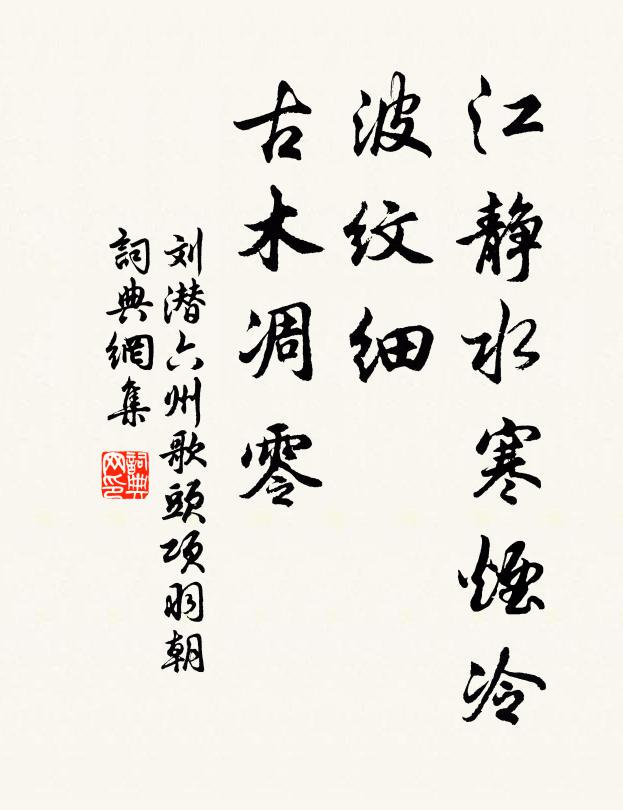 江静水寒煙冷
波纹细
古木凋零
刘潜六州歌頭项羽朝
詞典網集
詞典
网印